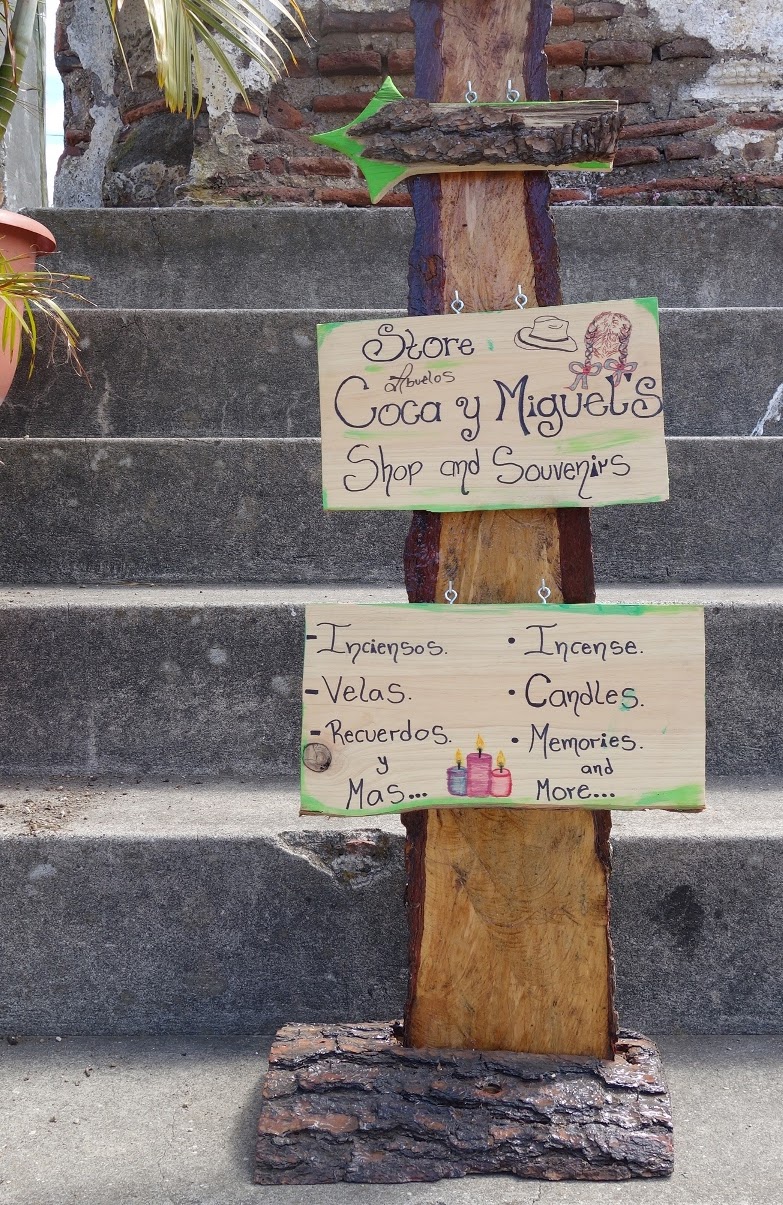 Store
Abuelos
Coca y Miguel's
Shop and Souvenirs
-Inciensos.
-Velas.
-Recuerdos.
y
Mas...
• Incense.
• Candles.
• Memories.
and
More...